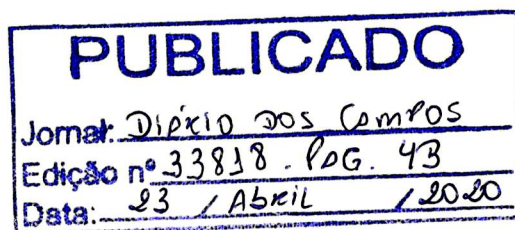 PUBLICADO
Jornal: DIÁRIO DOS CAMPOS
Edição nº 33818 - PAG. 4B
Data: 23 / ABRIL / 2020